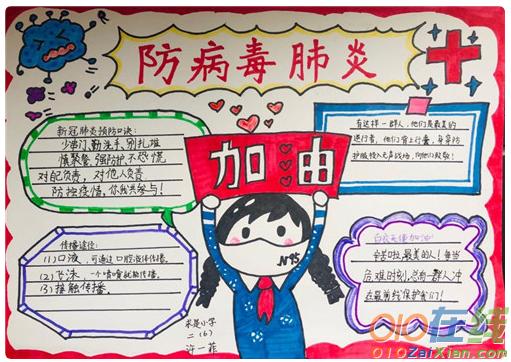 防病毒肺炎
新冠肺炎预防口诀:
少串门,勤洗手,别扎堆
慎聚餐,强防护,不恐慌
对自己负责,对他人负责
防控疫情,你我共参与!
有这样一群人,他们是最美的
逆行者,他们背上行囊,身穿防
护服投入无声战场,向他们致敬!
加油
传播途径:
(1)口液,可通过口腔液体传播.
(2)飞沫,一个喷嚏就能传播.
(3)接触传播.
N95
白衣天使加油
辛苦啦最美的人!每当
危难时刻,总有一群人冲
在最前线保护我们!
小学
二(6)
许一菲
010在线
010ZaiXian.com